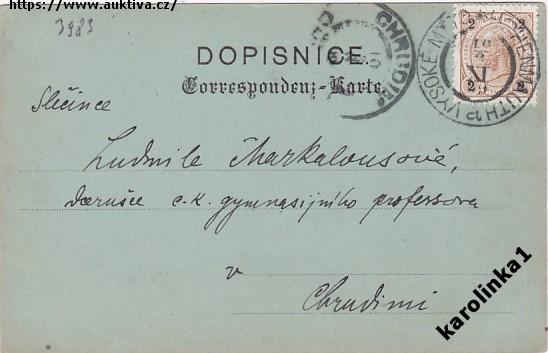 https://www.auktiva.cz/
3983
DOPISNICE.
Correspondenz-Karte.
CHRUDIM
VYSOKÉ
2 2
2 2
Slečince
Ludmile Markalousové,
dcerušce c. k. gymnasijního professora
v
Chrudimi
karolinka1